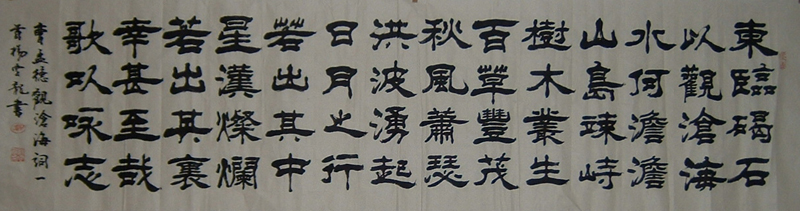 東臨碣石
以觀滄海
水何澹澹
山島竦峙
樹木叢生
百草豐茂
秋風蕭瑟
洪波湧起
日月之行
若出其中
星漢燦爛
若出其裏
幸甚至哉
歌以咏志
曹孟德觀滄海词一
首楊書